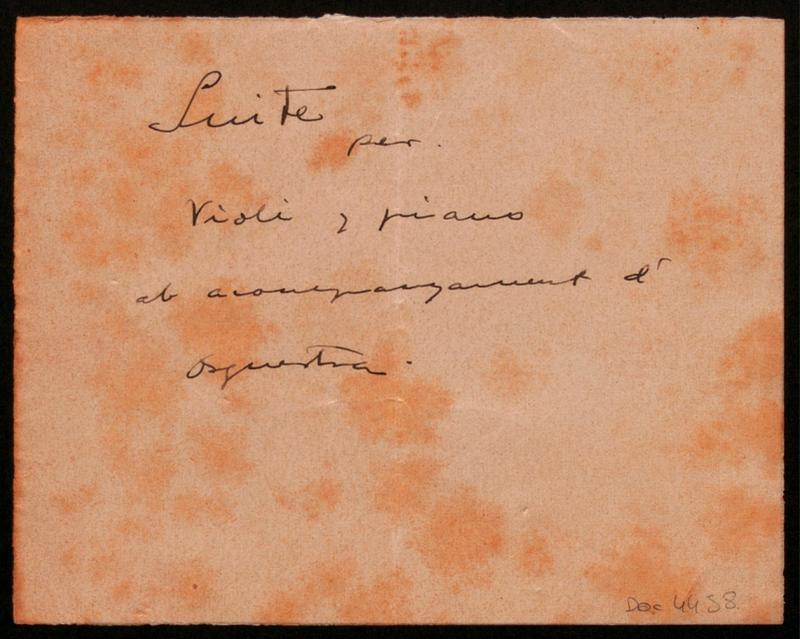 Suite
per.
Violi y piano
ab acompanyament d'
orquestra.
Doc 4458.